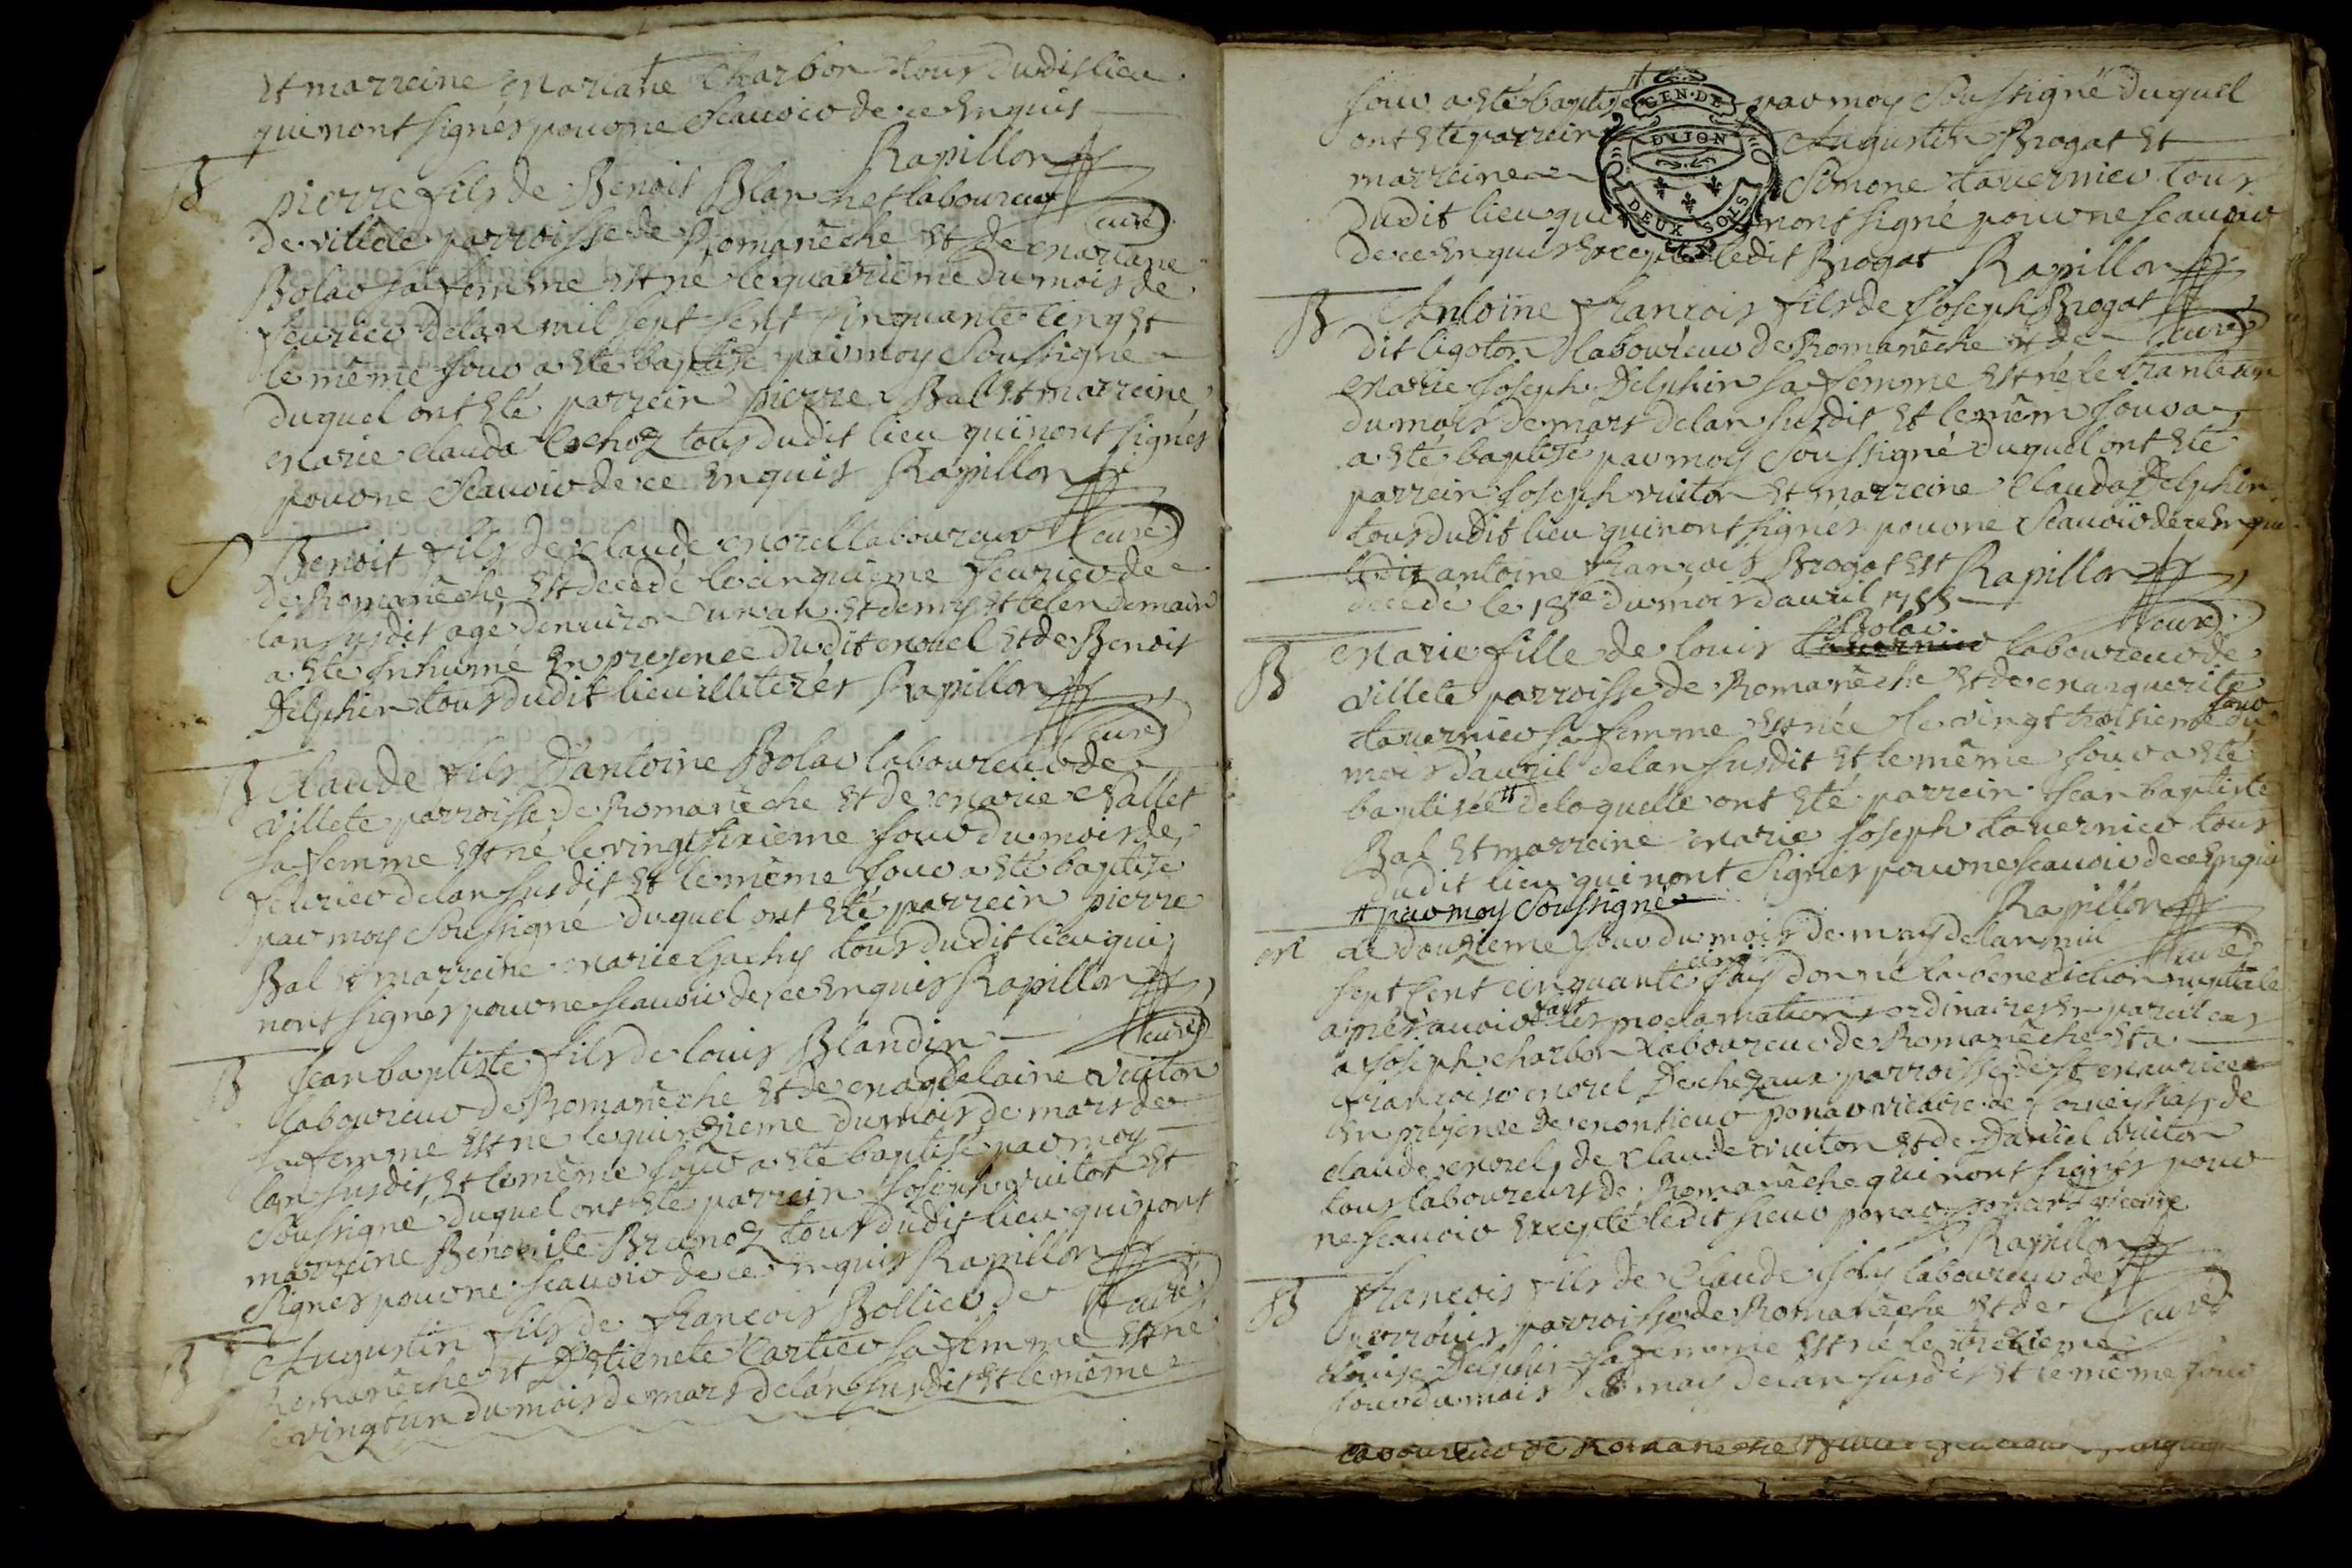 et marreine Mariane Charbon tous dudit lieu
qui nont signés pour ne scauoir de ce enquis
Rapillon
curé
B pierre fils de Benoit Blanchet laboureur
de villete parroisse de Romanêche et de mariane
Bolar sa femme est né le quatrieme du mois de
feurier delan mil sept sent sinquante cinq et
le même jour a eté baptisé par moy soussigné
duquel ont eté parrein pierre Bal et marreine
marie clauda Cochoz tous dudit lieu qui nont signés
pour ne scauoir de ce enquis Rapillon
curé
S Benoit fils de claude morel laboureur
de Romanêche est decedé le cinquieme feurier de
lan susdit agé denuiron un an et demy et le lendemain
a eté inhumé en presence dudit morel et de Benoit
Delphin tous dudit lieu illiterés Rapillon
curé
B Claude fils d'antoine Bolar laboureur de
villete parroisse de Romanêche et de marie Vallet
sa femme est né le vingt sixieme jour du mois de
feurier delan susdit et le même jour a eté baptisé
par moy soussigné duquel ont eté parrein pierre
Bal et marreine marie Gachy tous dudit lieu qui
nont signés pour ne scauoir de ce enquis Rapillon
curé
B Jean baptiste fils de louis Blandin
laboureur de Romanêche et de magdelaine vuiton
sa femme est né le quinzieme du mois de mars de
lan susdit et le même jour a eté baptisé par moy
soussigné duquel ont eté parrein Joseph vuiton et
marreine Benoite Brunoz tous dudit lieu qui nont
signés pour ne scauoir de ce enquis Rapillon
curé
B Augustin fils de françois Bollier de
Romanêche et d'Etienete Cartier sa femme est né
le vingt un du mois de mars delan susdit et le même
jour a eté baptisé par moy soussigné duquel
ont eté parrein Augustin Brogat et
marreine Simone tauernier tous
dudit lieu qui nont signé pour ne scauoir
de ce enquis excepté ledit Brogat Rapillon
GEN. DE
DIJON
DEUX SOLS
curé
B Antoine françois fils de Joseph Brogat
dit ligoton laboureur de Romanêche et de
marie Joseph Delphin sa femme est né le trante un
du mois de mars delan susdit et le mêm jour a
a eté baptisé par moy soussigné duquel ont eté
parrein Joseph vuiton et marreine Clauda Delphin
tous dudit lieu qui nont signés pour ne scauoir de ce enqui
ledit antoine françois Brogat est Rapillon
decedé le 18me du mois dauril 1755
curé
Bolar
B Marie fille de louis tauernier laboureur de
villete parroisse de Romanêche et de marguerite
tauernier sa femme est née le vingt troisieme jour du
mois d'auril delan susdit et le même jour a eté
baptisée # delaquelle ont eté parrein Jean baptiste
Bal et marreine marie Joseph tauernier tous
dudit lieu qui nont signés pour ne scauoir de ce enqui
# par moy soussigné Rapillon
curé
M Le douzieme jour du mois de may delan mil
sept sent cinquante cinq j'ay donné la benediction nuptiale
apres auoir fait les proclamations ordinaires en pareil cas
a Joseph charbon laboureur de Romanêche et a
françoise morel De chezaux parroisse de st maurice
en présence de monsieur ponar vicaire de de
claude morel, de claude vuiton et de Daniel vuiton
tous laboureurs de Romanêche qui nont signés pour
ne scauoir excepté ledit sieur ponar vicaire
Rapillon
curé
B François fils de Claude Joly laboureur de
parroisse de Romanêche et de
louise Delphin sa femme est né le treizieme
jour du mois de may delan susdit et le même jour
laboureur de Romaneche